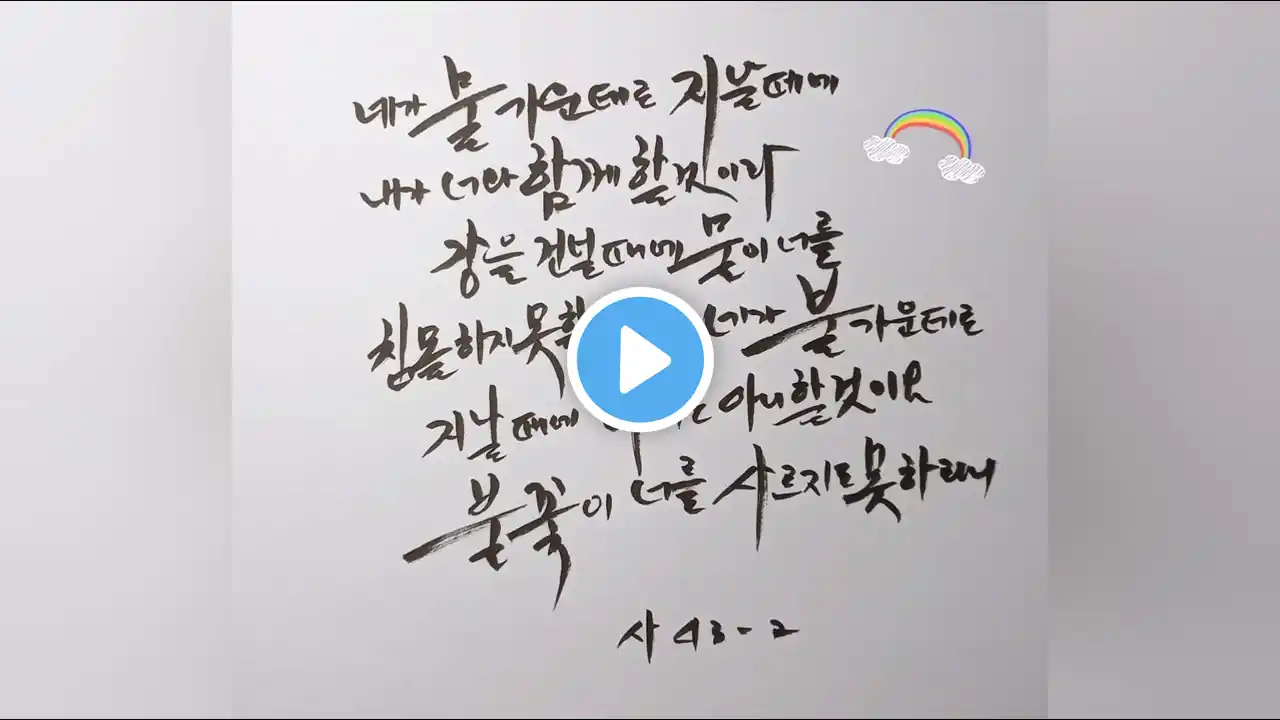 네가 물 가운데로 지날때에
내가 너와 함께 할것이라
강을 건널때에 물이 너를
침몰하지 네가 불 가운데로
지날때에 아니할것이요
불꽃이 너를 사르지도 못하리니
사 43-2